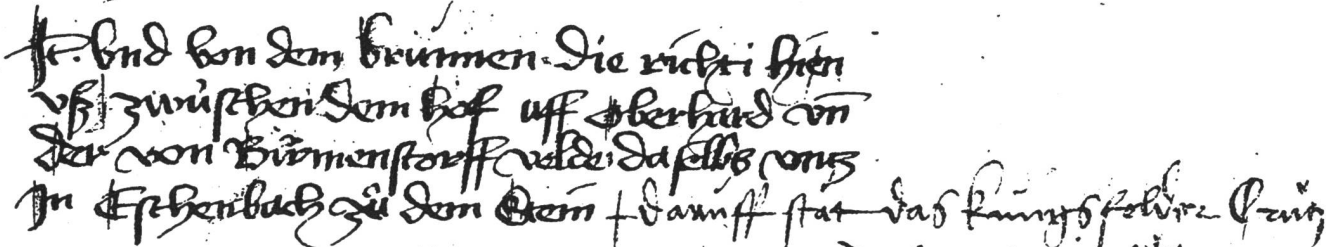 It. vnd von dem brunnen. die richti hien
vß zwúschen dem hof uff Oberhard vn̄
der von Birmenstorff velde daselbs vntz
In Eschenbach zů dem Stein + daruff stat das kúngsfelder Crútz